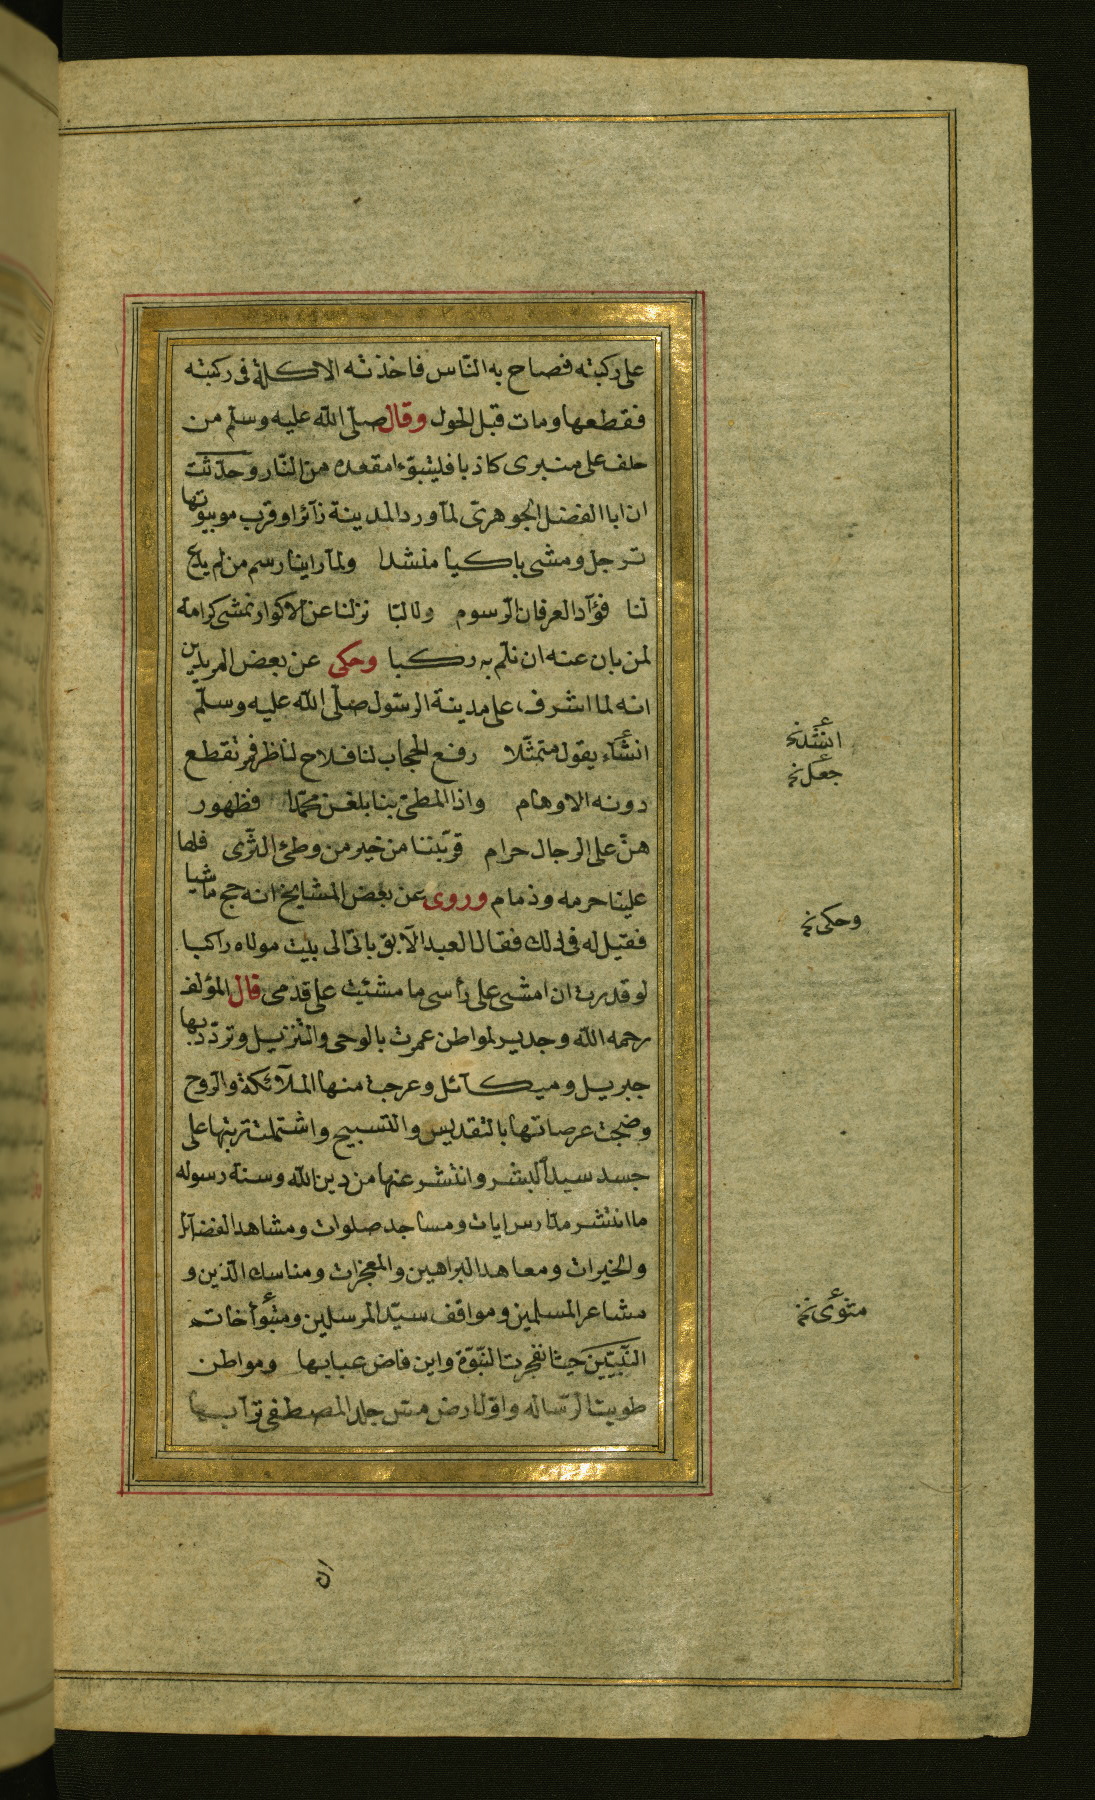 على ركبته فصاح به الناس فاخذته الاكلة فى ركبته
فقطعها ومات قبل الحول وقال صلّى الله عليه وسلّم من
حلف على منبرى كاذبا فليتبوّء مقعده من النار وحدّثت
ان ابا الفضل الجوهرىّ لمّا ورد المدينة زآئرا وقرب من بيوتها
ترجل ومشى باكيا منشدا ولمّا راينا رسم من لم يدع
لنا فؤآدا لعرفان الرسوم ولا لبّا نزلنا عن الاكوار نمشى كرامة
لمن بان عنه ان نلمّ به ركبا وحكى عن بعض المريدين
انه لما اشرف على مدينة الرسول صلّى الله عليه وسلّم
انشآء يقول متمثّلا رفع الحجاب لنا فلاح لناظر قمر تقطع
دونه الاوهام واذا المطىّ بنا بلغن محمّدا فظهور
هنّ على الرجال حرام قرّبننا من خير من وطئ الثّرى فلها
علينا حرمه وذمام وروى عن بعض المشايخ انه حج ماشيا
فقيل له فى ذلك فقال العبد الآبق ياتى الى بيت مولاه راكبا
لو قدرت ان امشى على رأسى ما مشيت على قدمى قال المؤلف
رحمه الله وجدير لمواطن عمرت بالوحى والتنزيل وتردّد بها
جبريل وميكآئل وعرجت منها الملآئكة والرّوح
وضجت عرصاتها بالتقديس والتسبيح واشتملت تربتها على
جسد سيد البشر وانتشر عنها من دين الله وسنة رسوله
ما انتشر مدارس ايات ومساجد صلوات ومشاهد الفضآئل
والخيرات ومعاهد البراهين والمعجزات ومناسك الدّين و
مشاعر المسلمين ومواقف سيّد المرسلين ومتبوّأ خاتم
النّبيّين حيث انفجرت النّبوّة واين فاض عبابها ومواطن
طويت الرّساله واوّل ارض مسّ جلد المصطفى ترآبها
انشد نخ
جعل نخ
وحكى نخ
مثوى نخ